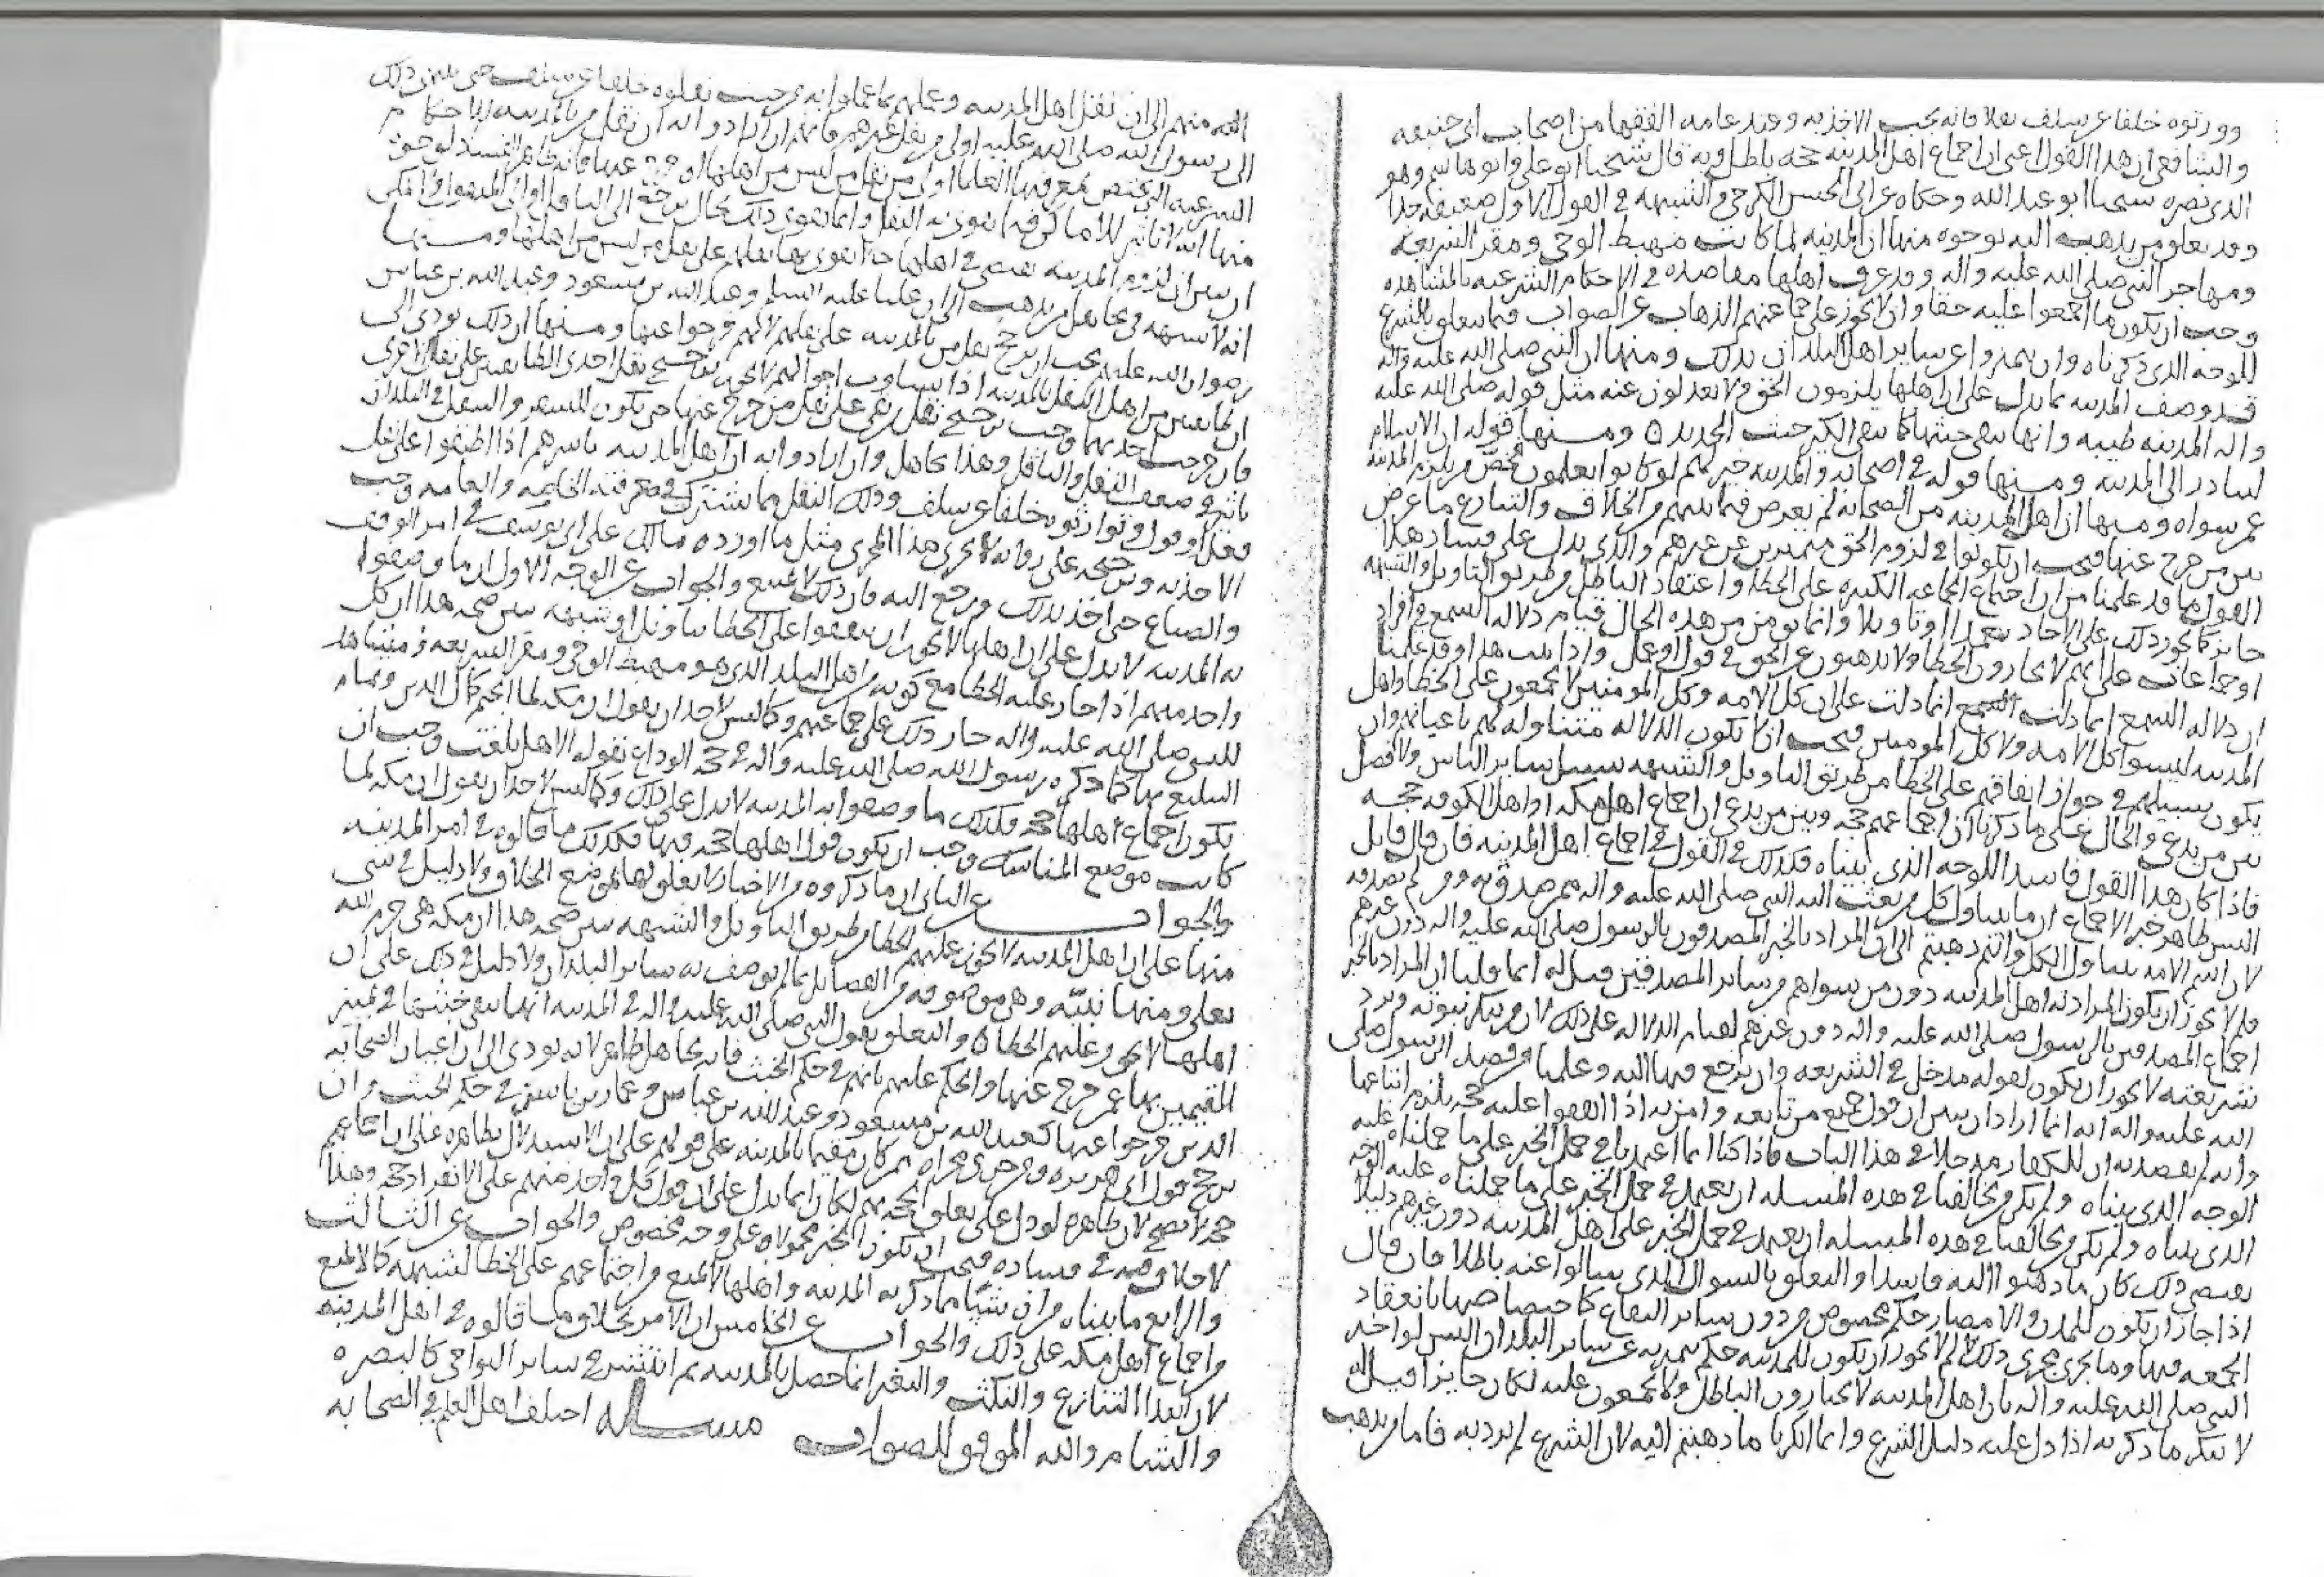 وورثوه خلفا عن سلف نقلا فانه يجب الاخذ به وعند عامه الفقها من اصحاب ابى حنيفه
والشافعى ان هذا القول اعنى ان اجماع اهل المدينه حجه باطل وبه قال شيخانا ابو على وابو هاشم وهو
الذى نصره شيخنا ابو عبد الله وحكاه عن ابى الحسن الكرخى والشبهه فى القول الاول ضعيفه جدا
وقد تعلق من يذهب اليه بوجوه منها ان المدينه لما كانت مهبط الوحى ومقر الشريعه
ومهاجر النبى صلى الله عليه واله وقد عرف اهلها مقاصده فى الاحكام الشرعيه بالمشاهده
وجب ان يكون ما اجمعوا عليه حقا وان لا يجوز على جماعتهم الذهاب عن الصواب فيما يتعلق بالشرع
للوجه الذى ذكرناه وان يتميزوا عن ساير اهل البلدان بذلك ومنها ان النبى صلى الله عليه واله
قد وصف المدينه بما يدل على ان اهلها يلزمون الحق ولا يعدلون عنه مثل قوله صلى الله عليه
واله المدينه طيبه وانها تنفى خبثها كما ينفى الكير خبث الحديد ومنها قوله ان الاسلام
ليارز الى المدينه ومنها قوله فى اصحابه والمدينه خير لهم لو كانوا يعلمون فخص من يلزم المدينه
عمن سواه ومنها ان اهل المدينه من الصحابه لم يعرض فيما بينهم من الخلاف والتنازع ما عرض
بين من خرج عنها فيجب ان يكونوا فى لزوم الحق متميزين عن غيرهم والذى يدل على فساد هذا
القول ما قد علمنا من ان اجتماع الجماعه الكثيره على الخطا واعتقاد الباطل من طريق التاويل والشبهه
جايز كما يجوز ذلك على الاحاد تعمدا او تاويلا وانما يومن من هذه الحال قيام دلاله السمع فى افراد
او جماعات على انهم لا يختارون الخطا ولا يذهبون عن الحق فى قول او عمل واذا ثبت هذا وقد علمنا
ان دلاله السمع انما دلت على ان كل الامه وكل المومنين لا يجمعون على الخطا واهل
المدينه ليسوا كل الامه ولا كل المومنين فيجب ان لا تكون الدلاله متناوله لهم باعيانهم وان
يكون سبيلهم فى جواز اتفاقهم على الخطا من طريق التاويل والشبهه سبيل ساير الناس ولا فصل
بين من يدعى والحال على ما ذكرنا ان اجماعهم حجه وبين من يدعى ان اجماع اهل مكه او اهل الكوفه حجه
فاذا كان هذا القول فاسدا للوجه الذى بيناه فكذلك القول فى اجماع اهل المدينه فان قال قايل
اليس ظاهر خبر الاجماع ان ما يتناول كل من بعث اليه النبى صلى الله عليه واله ممن صدق به ومن لم يصدقه
لان اسم الامه يتناول الكل وانتم ذهبتم الى ان المراد بالخبر المصدقون بالرسول صلى الله عليه واله دون غيرهم
فلم لا يجوز ان يكون المراد به اهل المدينه دون من سواهم من ساير المصدقين قيل له انما قلنا ان المراد بالخبر
اجماع المصدقين بالرسول صلى الله عليه واله دون غيرهم لقيام الدلاله على ذلك لان من ينكر نبوته ويرد
شريعته لا يجوز ان يكون لقوله مدخل فى الشريعه وان يرجع فيها اليه وعلمنا من قصد الرسول صلى
الله عليه واله انه انما اراد ان يبين ان قول جميع من تابعه وامن به اذا اتفقوا عليه حجه يلزم اتباعها
وانه لم يقصد به ان للكفار مدخلا فى هذا الباب فاذا كنا انما اعتمدنا فى حمل الخبر على ما حملناه عليه
الوجه الذى بيناه ولم يكن مخالفنا فى هذه المسله ان يعتمد فى حمل الخبر على ما حملناه عليه الوجه
الذى بيناه ولم يكن مخالفنا فى هذه المسله ان يعتمد فى حمل الخبر على اهل المدينه دون غيرهم دليلا
يقتضى ذلك كان ما ذهبوا اليه فاسدا والتعلق بالسوال الذى سالوا عنه باطلا فان قال
اذا جاز ان يكون للمدن والامصار حكم مخصوص من دون ساير البقاع كاختصاصها بانعقاد
الجمعه فيها وما يجرى مجرى ذلك لم لا يجوز ان يكون للمدينه حكم تتميز به عن ساير البلدان اليس لو اخبر
النبى صلى الله عليه واله بان اهل المدينه لا يختارون الباطل ولا يجمعون عليه لكان جايزا قيل له
لا ننكر ما ذكرته اذا دل عليه دليل الشرع وانما انكرنا ما ذهبتم اليه لان الشرع لم يرد به فاما من يذهب
اليه منهم الى ان نقل اهل المدينه وعملهم بما عملوا به من حيث نقلوه خلفا عن سلف حتى ينتهى ذلك
الى رسول الله صلى الله عليه اولى من نقل غيرهم فانهم ان ارادوا به ان نقل من بالمدينه الاحكام
الشرعيه التى يختص بمعرفتها العلما اولى من نقل من ليس من اهلها او خرج عنها فانه ظاهر الفساد لوجوه
منها انه لا تاثير للاماكن فيما يقوى به النقل وانما يقوى ذلك بحال يرجع الى الناقل او الى المنقول ولا يمكن
ان يبين ان لزوم المدينه يقتضى فى اهلها حالا يقوى بها نقلهم على نقل من ليس من اهلها ومنها
انه لا شبهه فى تجاهل من يذهب الى ان عليا عليه السلم وعبد الله بن مسعود وعبد الله بن عباس
رضوان الله عليهم يجب ان يرجح نقل من بالمدينه على نقلهم لانهم خرجوا عنها ومنها ان ذلك يودى الى
ان الطايفتين من اهل النقل بالمدينه اذا تساوت احوالهم لا يجوز ترجيح نقل احدى الطايفتين على نقل الاخرى
فان خرجت احديهما وجب ترجيح نقل من بقى على نقل من خرج عنها حتى يكون للسفر والتنقل فى البلدان
تاثير فى ضعف النقل والناقل وهذا تجاهل وان ارادوا به ان اهل المدينه باسرهم اذا اطبقوا على نقل
فعل او قول وتوارثوه خلفا عن سلف وذلك النقل مما يشترك فى معرفته الخاصه والعامه وجب
الاخذ به وترجيحه على روايه لا تجرى هذا المجرى مثل ما اورده مالك على ابى يوسف فى امر الوقف
والصاع حتى اخذ بذلك ورجع اليه فان ذلك لا يمتنع والجواب عن الوجه الاول ان ما وصفوا
به المدينه لا يدل على ان اهلها لا يجوز ان يتفقوا على الخطا بتاويل او شبهه يبين صحه هذا ان كل
واحد منهم اذا جاز عليه الخطا مع كونه من اهل البلد الذى هو مهبط الوحى ومقر الشريعه ومشاهد
للنبى صلى الله عليه واله جاز ذلك على جماعتهم وكما ليس لاحد ان يقول ان مكه لما انختم كمال الدين وتمام
التبليغ بها كما ذكره رسول الله صلى الله عليه واله فى حجه الوداع بقوله الا هل بلغت وجب ان
يكون اجماع اهلها حجه فكذلك ما وصفوا به المدينه لا يدل على ذلك وكما ليس لاحد ان يقول ان مكه لما
كانت موضع المناسك وجب ان يكون قول اهلها حجه فيها فكذلك ما قالوه فى امر المدينه
والجواب عن الثانى ان ما ذكروه من الاخبار لا تعلق لها بموضع الخلاف ولا دليل فى شى
منها على ان اهل المدينه لا يجوز عليهم الخطا من طريق التاويل والشبهه يبين صحه هذا ان مكه هى حرم الله
تعلى ومنها نبيه وهى موصوفه من الفضايل بما لم يوصف به ساير البلدان ولا دليل فى ذلك على ان
اهلها لا يجوز عليهم الخطا والتعلق بقول النبى صلى الله عليه واله فى المدينه انها تنفى خبثها فى تمييز
المقيمين بها عمن خرج عنها والحكم عليهم بانهم فى حكم الخبث فانه تجاهل ظاهر لانه يودى الى ان اعيان الصحابه
الذين خرجوا عنها كعبد الله بن مسعود وعبد الله بن عباس وعمار بن ياسر فى حكم الخبث وان
يرجح قول ابى هريره ومن جرى مجراه ممن كان مقيما بالمدينه على قولهم على ان الاستدلال بظاهره على ان اجماعهم
حجه لا يصح لان ظاهره لو دل على تعلق الحجه بهم لكان انما يدل على ان قول كل واحد منهم على الانفراد حجه وهذا
لا خلاف فيه فى فساده فيجب ان يكون الخبر محمولا على وجه مخصوص والجواب عن الثالث
والرابع ما بيناه من ان شيئا مما ذكر به المدينه واهلها لا يمنع من اجتماعهم على الخطا لشبهه كما لا يمنع
من اجماع اهل مكه على ذلك والجواب عن الخامس ان الامر بخلاف ما قالوه فى اهل المدينه
لان ابتدا التنازع والنكث والتغير انما حصل بالمدينه ثم انتشر فى ساير النواحى كالبصره
والشام والله الموفق للصواب مسله اختلف اهل العلم فى الصحابه